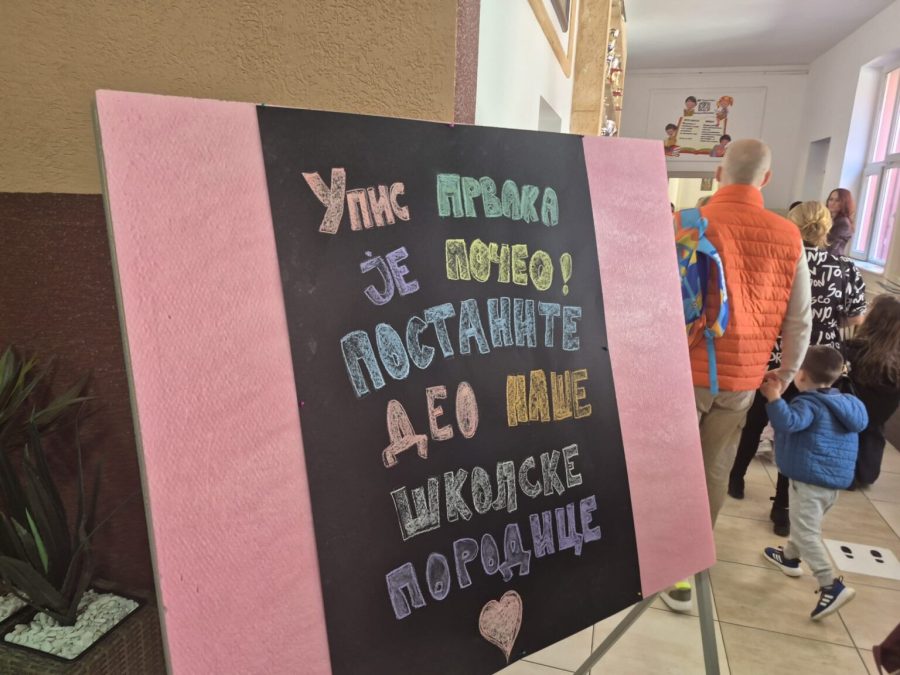 Упис ПРВАКА
је ПОЧЕО!
ПОСТАНИТЕ
ДЕО НАШЕ
ШКОЛСКЕ
ПОРОДИЦЕ